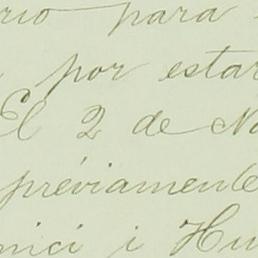 rio para
por estar
El 2 de No
préviamente
nici i Hu